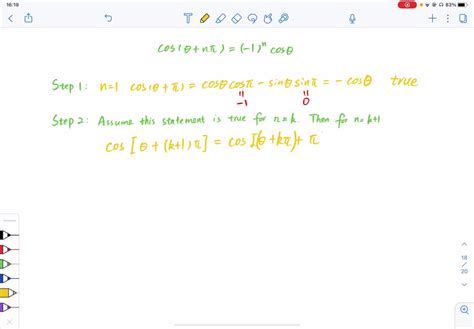 16:19
83%
cos(θ+nπ) = (-1)ⁿ cosθ
Step 1: n=1 cos(θ+π) = cosθ cosπ - sinθ sinπ = - cosθ true
-1 0
Step 2: Assume this statement is true for n=k. Then for n=k+1
cos [θ + (k+1)π] = cos [(θ+kπ)+ π
18
/
20